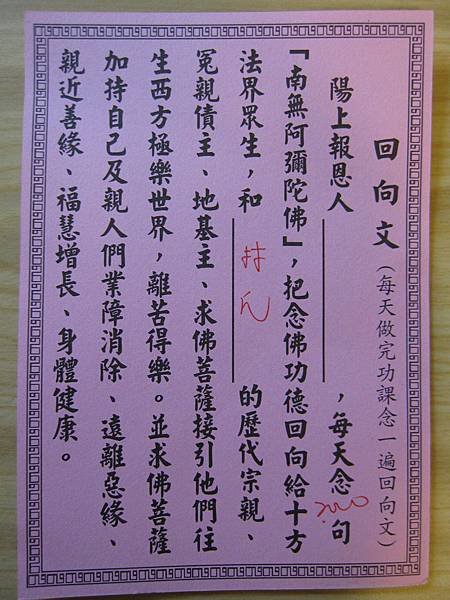 回向文（每天做完功課念一遍回向文）
陽上報恩人＿＿＿＿，每天念2000句
「南無阿彌陀佛」，把念佛功德回向給十方
法界眾生，和 林氏 的歷代宗親、
冤親債主、地基主、求佛菩薩接引他們往
生西方極樂世界，離苦得樂。並求佛菩薩
加持自己及親人們業障消除、遠離惡緣、
親近善緣、福慧增長、身體健康。